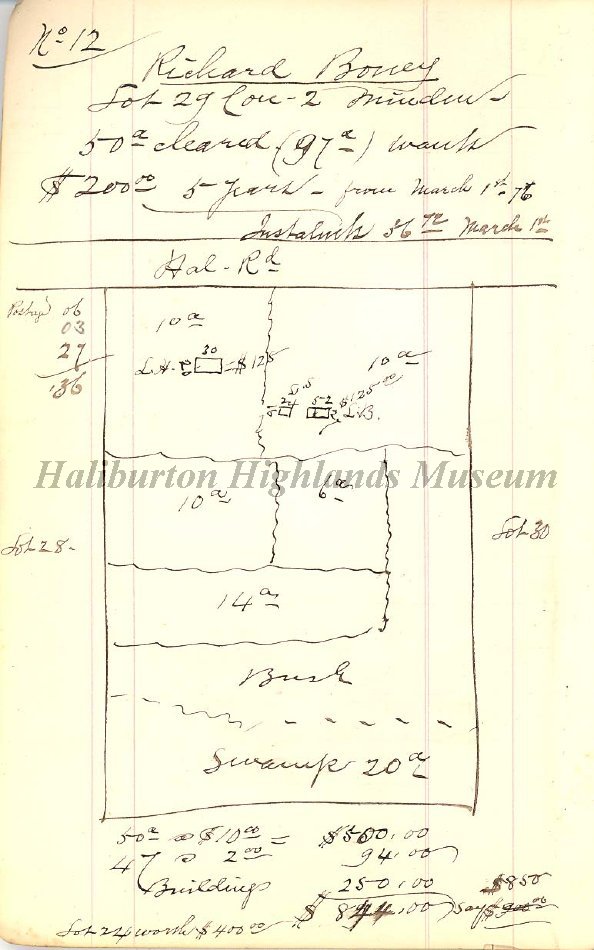 No 12
Richard Boney
Lot 29 Con-2 Minden
50a cleared (97a) wants
$200.00 5 years - from March 1st 76
Instalmts 56 72 March 1st
Hal-Rd
Postage 06
03
27
.36
10a
30
L.H. $125
10a
24
52
$125.00
L.B.
Haliburton Highlands Museum
10a
6a
Lot 28-
Lot 30
14a
Bush
Swamp 20a
50a @ $10.00 = $500.00
47 @ 2.00 94.00
Buildings 250.00 $850
$ 844.00 Say $900.00
Lot 24 worth $400.00